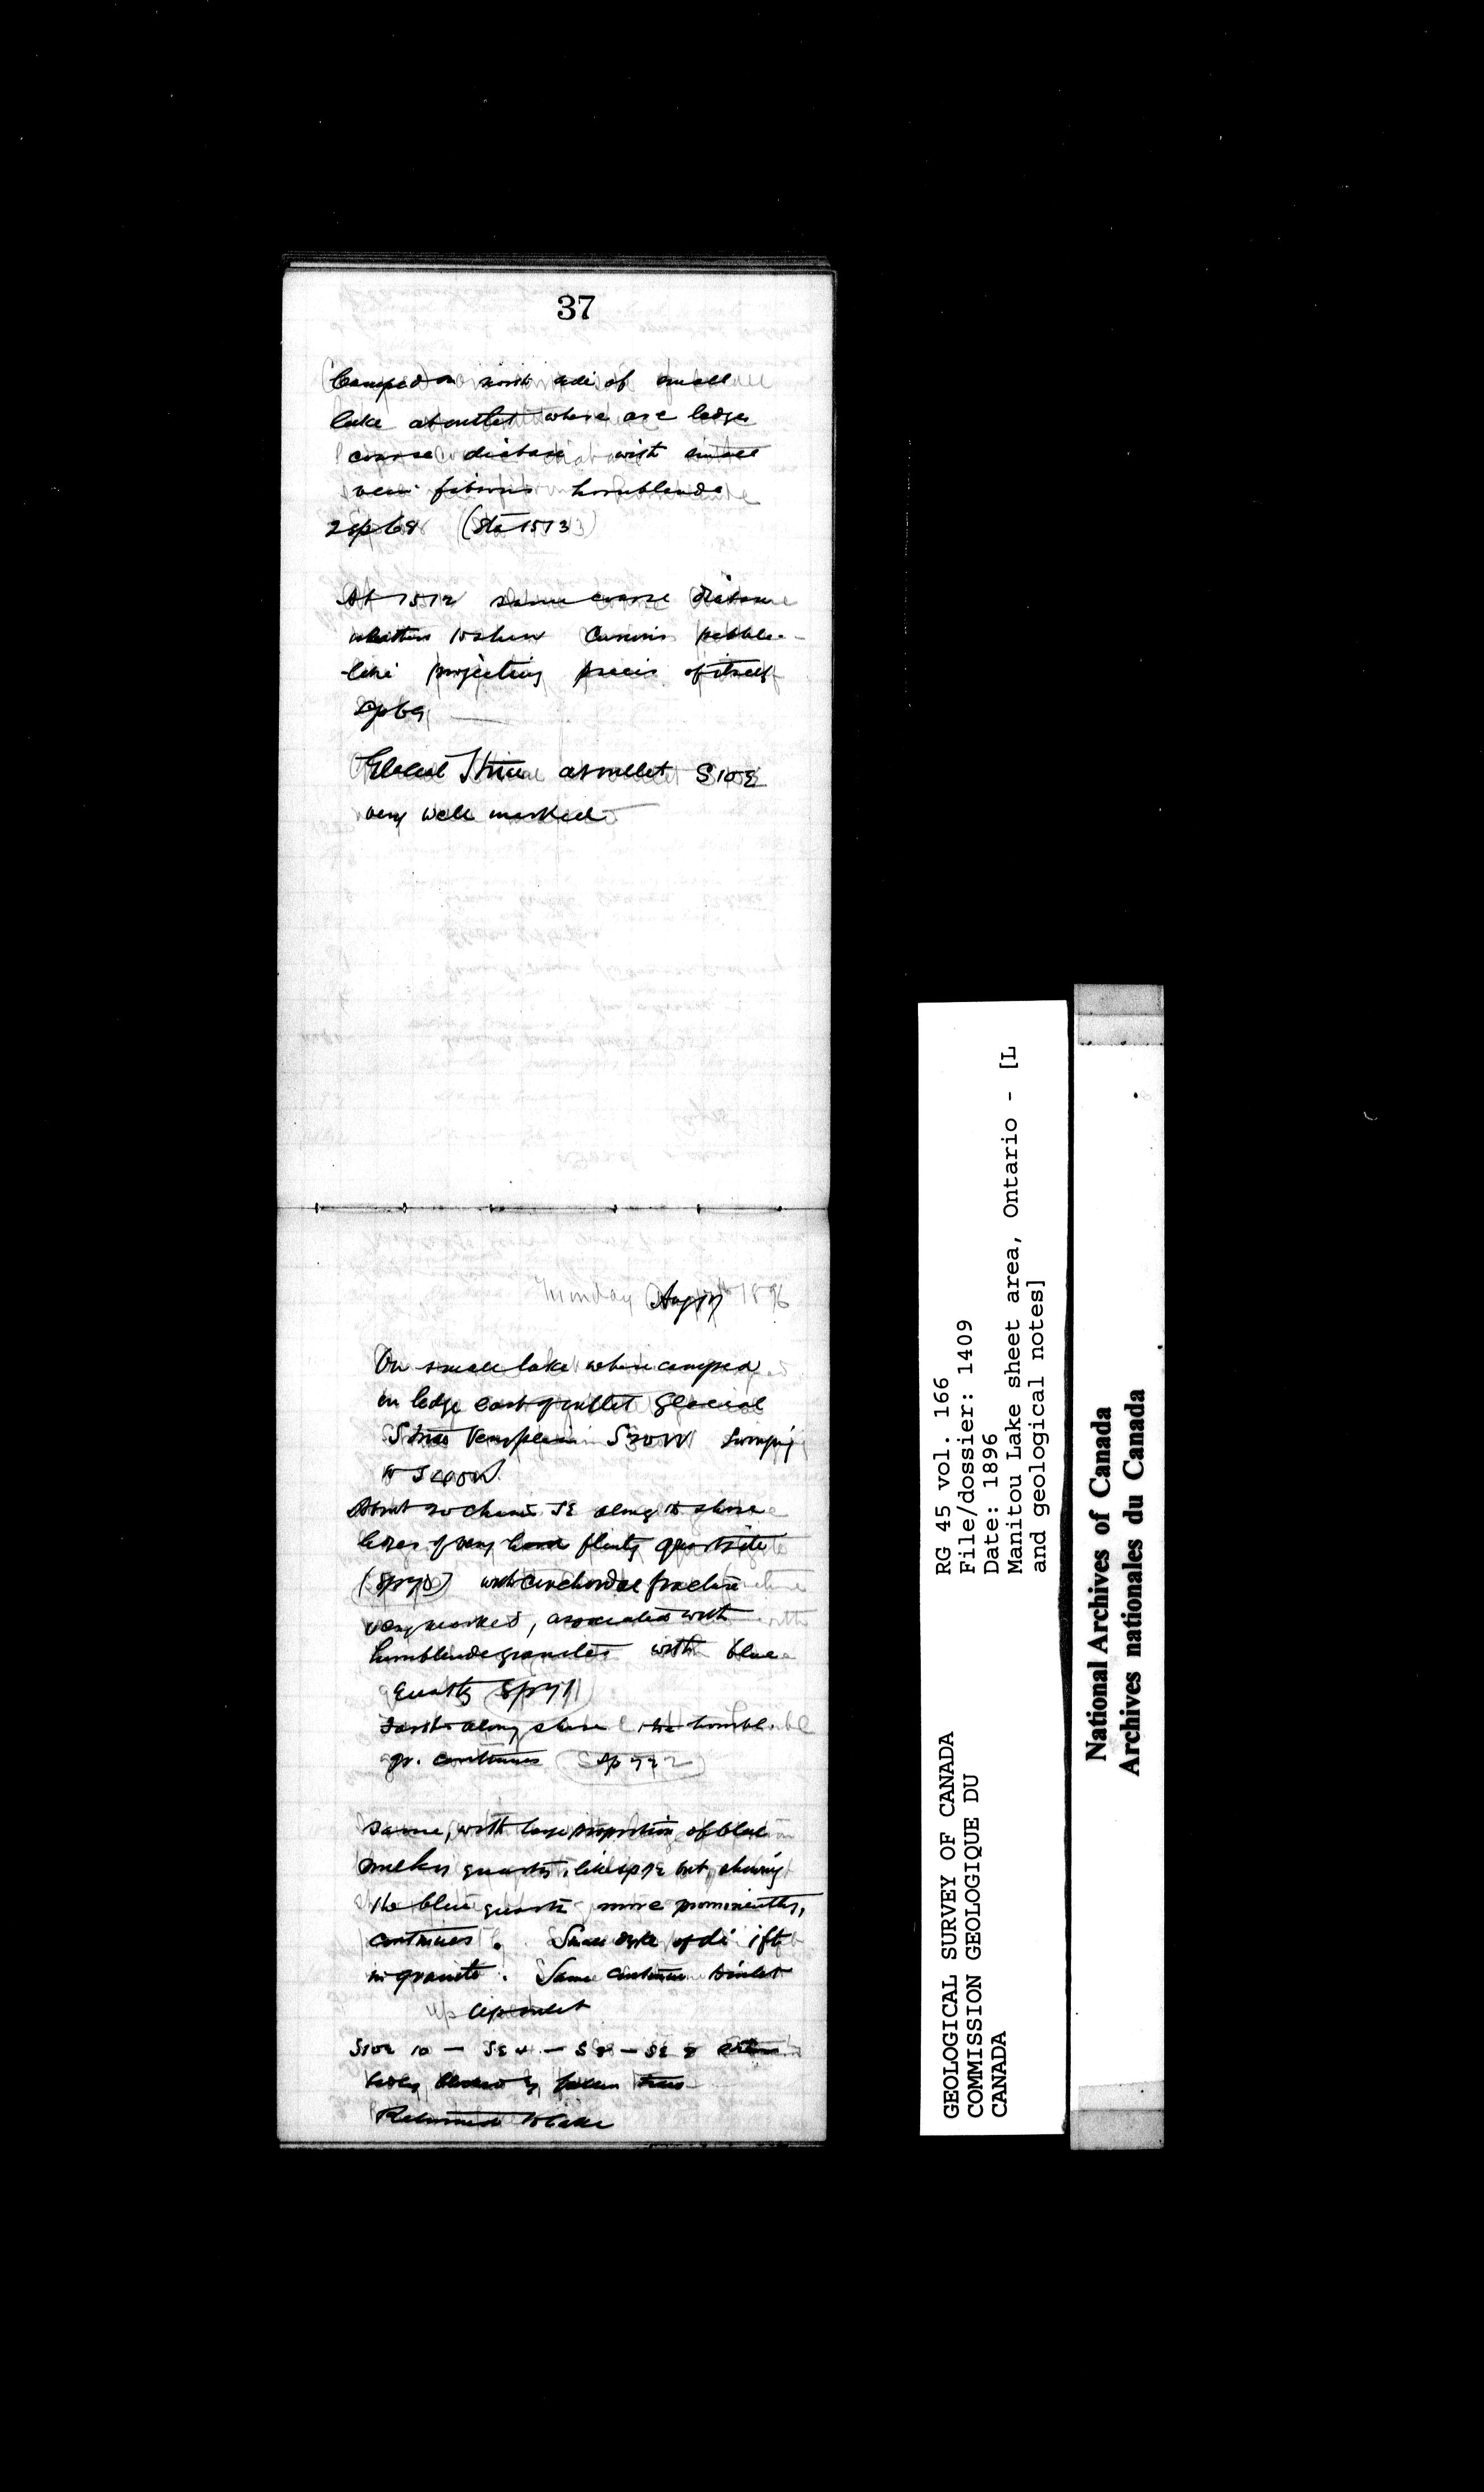 37
Camped on north side of small
lake at outlet where are ledges
coarse diabase with small
vein fibrous hornblende
2 sp 68 (Sta 1513)
At 1512 same coarse diabase
weathers to show curious pebble-
like projecting pieces of itself
Sp 69
Glacial Striae at outlet S10E
very well marked
Monday Aug 17th 1896
On small lake where camped
on ledge east of outlet Glacial
Striae very plain S20W swinging
to S40W
About 20 chains SE along the shore
ledges of very hard flinty quartzite
(Sp 70) with conchoidal fracture
very marked, associated with
hornblende granites with blue
quartz (Sp 71)
along shore the hornbl.
gr. continues (Sp 72)
Same, with large proportion of blue
milky quartz, like sp 72 but showing
the blue quartz more prominently,
continues. Small dyke of di 1 ft
in granite. Same continues to inlet
Up inlet
S10E 10 — SE 4 — S 8 — SE 8
badly blocked by fallen trees
Returned to lake
GEOLOGICAL SURVEY OF CANADA
COMMISSION GEOLOGIQUE DU
CANADA
RG 45 vol. 166
File/dossier: 1409
Date: 1896
Manitou Lake sheet area, Ontario - [L
and geological notes]
National Archives of Canada
Archives nationales du Canada